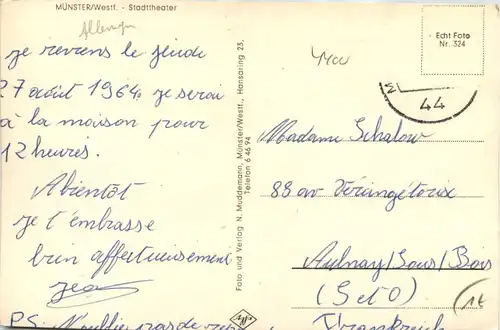 MÜNSTER/Westf. - Stadttheater
Je reviens le jeudi
27 août 1964, je serai
à la maison pour
12 heures.
Abientôt
je t'embrasse
bien affectueusement
Jean
PS. N'oublie pas de
Foto und Verlag N. Muddemann, Münster/Westf., Hansaring 23,
Telefon 6 46 94
Echt Foto
Nr. 324
44
Madame Schalow
88 av Vercingétorix
Aulnay/Sous/Bois
(S et O)
Frankreich
1€